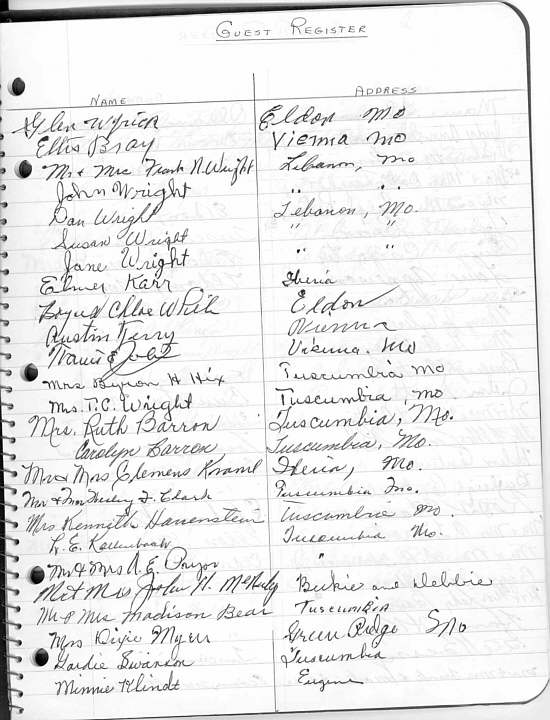 GUEST REGISTER
NAME ADDRESS
Glen Wyrick Eldon Mo
Ellis Bray Vienna Mo
Mr. & Mrs Frank N. Wright Lebanon, Mo
John Wright " "
Dan Wright Lebanon, Mo.
Susan Wright " "
Jane Wright " "
Elmer Karr Iberia
Chloe White Eldon
Austin Terry Vienna
Travis Vienna. Mo
Mrs Byron H Hix Tuscumbia Mo
Mrs. T.C. Wright Tuscumbia, Mo
Mrs. Ruth Barron Tuscumbia, Mo.
Carolyn Barron Tuscumbia, Mo.
Mr & Mrs Clemens Kraml Iberia, Mo.
Mr & Mrs Wesley J. Clark Tuscumbia Mo.
Mrs Kenneth Hauenstein Tuscumbia Mo.
L. E. Kallenbach Tuscumbia Mo.
Mr & Mrs A. E. Pryor "
Mr & Mrs John H. Beckie and Debbie
Mr & Mrs Madison Bear Tuscumbia
Mrs Dixie Myers Green Ridge Mo
Gardie Swanson Tuscumbia
Minnie Klindt Eugene